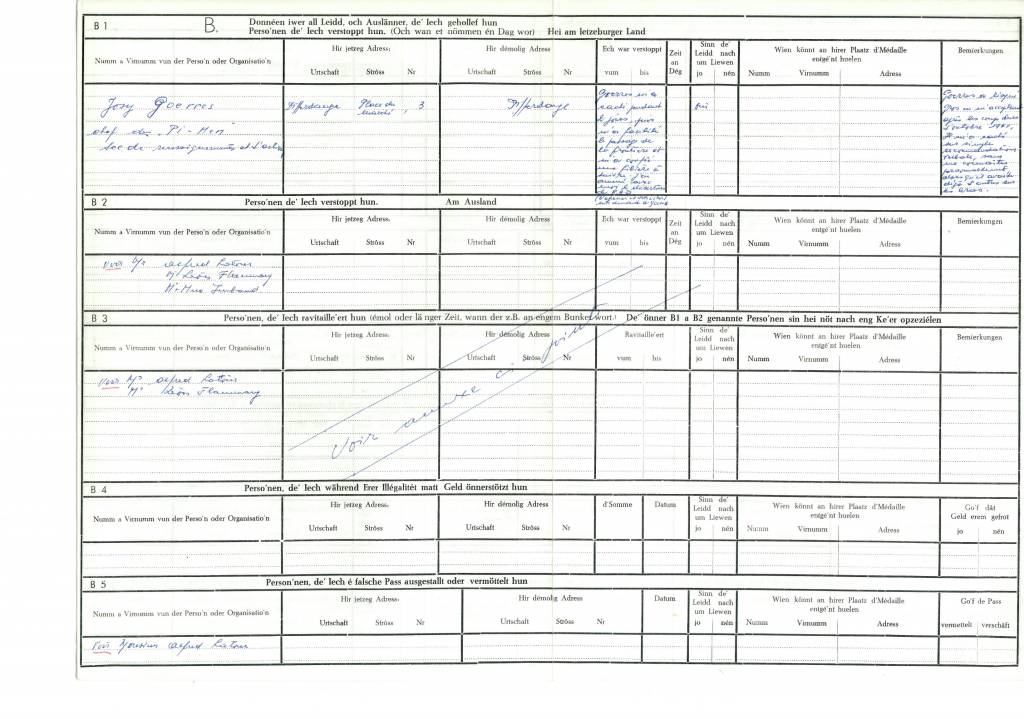 B 1 B. Donnéen iwer all Leidd, och Auslänner, de' Iech gehollef hun
Perso'nen de' Iech verstoppt hun. (Och wan et nömmen én Dag wor) Hei am letzeburger Land
Numm a Virnumm vun der Perso'n oder Organisatio'n
Hir jetzeg Adress:
Urtschaft Ströss Nr
Hir démolig Adress:
Urtschaft Ströss Nr
Ech war verstoppt
vum bis
Zeit
an
Dég
Sinn de'
Leidd nach
um Liewen
jo nén
Wien könnt an hirer Plaatz d'Médaille
entgé'nt huelen
Numm Virnumm Adress
Bemierkungen
Josy Goerres
chef des "Pi-Men"
Differdange Place du marché, 3
Differdange
Goerres m'a
caché pendant
jours, puis
m'a facilité
le passage de
la frontière et
m'a confié
une filière à
B 2 Perso'nen de' Iech verstoppt hun. Am Ausland
Numm a Virnumm vun der Perso'n oder Organisatio'n
Hir jetzeg Adress:
Urtschaft Ströss Nr
Hir démolig Adress:
Urtschaft Ströss Nr
Ech war verstoppt
vum bis
Zeit
an
Dég
Sinn de'
Leidd nach
um Liewen
jo nén
Wien könnt an hirer Plaatz d'Médaille
entgé'nt huelen
Numm Virnumm Adress
Bemierkungen
Voir Mr Alfred Latour
Mr Léon Flammang
B 3 Perso'nen, de' Iech ravitaille'ert hun (émol oder lä nger Zeit, wann der z.B. an engem Bunker wort.) De' önner B1 a B2 genannte Perso'nen sin hei nöt nach eng Ke'er opzeziélen
Numm a Virnumm vun der Perso'n oder Organisatio'n
Hir jetzeg Adress:
Urtschaft Ströss Nr
Hir démolig Adress:
Urtschaft Ströss Nr
Ravitaille'ert
vum bis
Sinn de'
Leidd nach
um Liewen
jo nén
Wien könnt an hirer Plaatz d'Médaille
entgé'nt huelen
Numm Virnumm Adress
Bemierkungen
Voir Mr Alfred Latour
Mr Léon Flammang
Voir annexe ci-joint
B 4 Perso'nen, de' Iech während Erer Illégalitét matt Geld önnerstötzt hun
Numm a Virnumm vun der Perso'n oder Organisatio'n
Hir jetzeg Adress:
Urtschaft Ströss Nr
Hir démolig Adress:
Urtschaft Ströss Nr
d'Somme
Datum
Sinn de'
Leidd nach
um Liewen
jo nén
Wien könnt an hirer Plaatz d'Médaille
entgé'nt huelen
Numm Virnumm Adress
Go'f dåt
Geld erem gefrot
jo nén
B 5 Person'nen, de' Iech é falsche Pass ausgestallt oder vermöttelt hun
Numm a Virnumm vun der Perso'n oder Organisatio'n
Hir jetzeg Adress:
Urtschaft Ströss Nr
Hir démolig Adress:
Urtschaft Ströss Nr
Datum
Sinn de'
Leidd nach
um Liewen
jo nén
Wien könnt an hirer Plaatz d'Médaille
entgé'nt huelen
Numm Virnumm Adress
Go'f de Pass
vermettelt verschåft
Voir Monsieur Alfred Latour